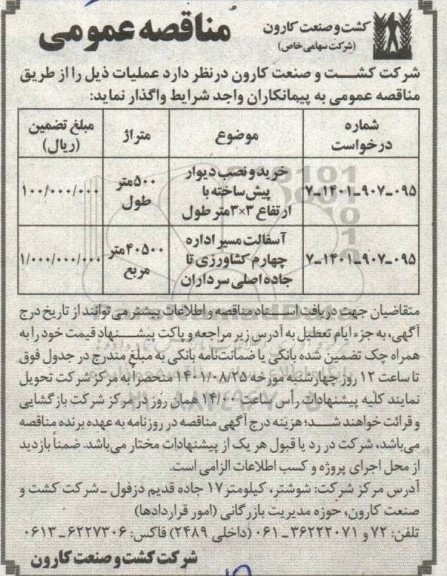 کشت و صنعت کارون
(شرکت سهامی خاص)
مناقصه عمومی
شرکت کشت و صنعت کارون درنظر دارد عملیات ذیل را از طریق
مناقصه عمومی به پیمانکاران واجد شرایط واگذار نماید:
شماره درخواست موضوع متراژ مبلغ تضمین (ریال)
۷-۱۴۰۱-۹۰۷-۰۹۵ خرید و نصب دیوار پیش‌ساخته با ارتفاع ۳×۳ متر طول ۵۰۰ متر طول ۱۰۰/۰۰۰/۰۰۰
۷-۱۴۰۱-۹۰۷-۰۹۵ آسفالت مسیر اداره چهارم کشاورزی تا جاده اصلی سرداران ۴۰۵۰۰ متر مربع ۱/۰۰۰/۰۰۰/۰۰۰
متقاضیان جهت دریافت اسناد مناقصه و اطلاعات بیشتر می توانند از تاریخ درج
آگهی، به جزء ایام تعطیل به آدرس زیر مراجعه و پاکت پیشنهاد قیمت خود را به
همراه چک تضمین شده بانکی یا ضمانت‌نامه بانکی به مبلغ مندرج در جدول فوق
تا ساعت ۱۲ روز چهارشنبه مورخه ۱۴۰۱/۰۸/۲۵ منحصرا به مرکز شرکت تحویل
نمایند کلیه پیشنهادات رأس ساعت ۱۴/۰۰ همان روز در مرکز شرکت بازگشایی
و قرائت خواهند شد؛ هزینه درج آگهی مناقصه در روزنامه به عهده برنده مناقصه
می‌باشد، شرکت در رد یا قبول هر یک از پیشنهادات مختار می‌باشد. ضمنا بازدید
از محل اجرای پروژه و کسب اطلاعات الزامی است.
آدرس مرکز شرکت: شوشتر، کیلومتر ۱۷ جاده قدیم دزفول - شرکت کشت و
صنعت کارون، حوزه مدیریت بازرگانی (امور قراردادها)
تلفن: ۷۲ و ۳۶۲۲۲۰۷۱-۰۶۱ (داخلی ۲۴۸۹) فاکس: ۶۲۲۷۳۰۶-۰۶۱۳
شرکت کشت و صنعت کارون